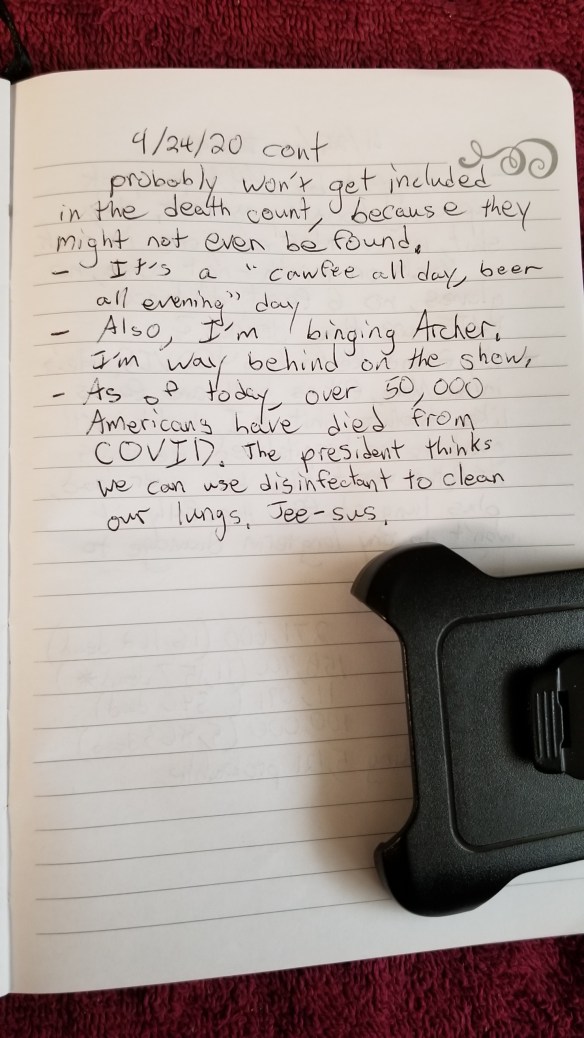 4/24/20 cont
probably won't get included
in the death count, because they
might not even be found.
- It's a "cawfee all day, beer
all evening" day
- Also, I'm binging Archer.
I'm way behind on the show.
- As of today, over 50,000
Americans have died from
COVID. The president thinks
we can use disinfectant to clean
our lungs. Jee-sus.